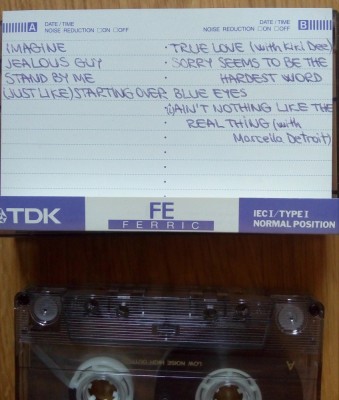 A DATE / TIME
NOISE REDUCTION □ON □OFF
DATE / TIME B
NOISE REDUCTION □ON □OFF
IMAGINE
JEALOUS GUY
STAND BY ME
(JUST LIKE) STARTING OVER
· TRUE LOVE (with Kiki Dee)
· SORRY SEEMS TO BE THE
HARDEST WORD
BLUE EYES
AIN'T NOTHING LIKE THE
REAL THING (with
Marcella Detroit)
TDK
FE
FERRIC
IEC I / TYPE I
NORMAL POSITION
A
LOW NOISE HIGH OUTPUT